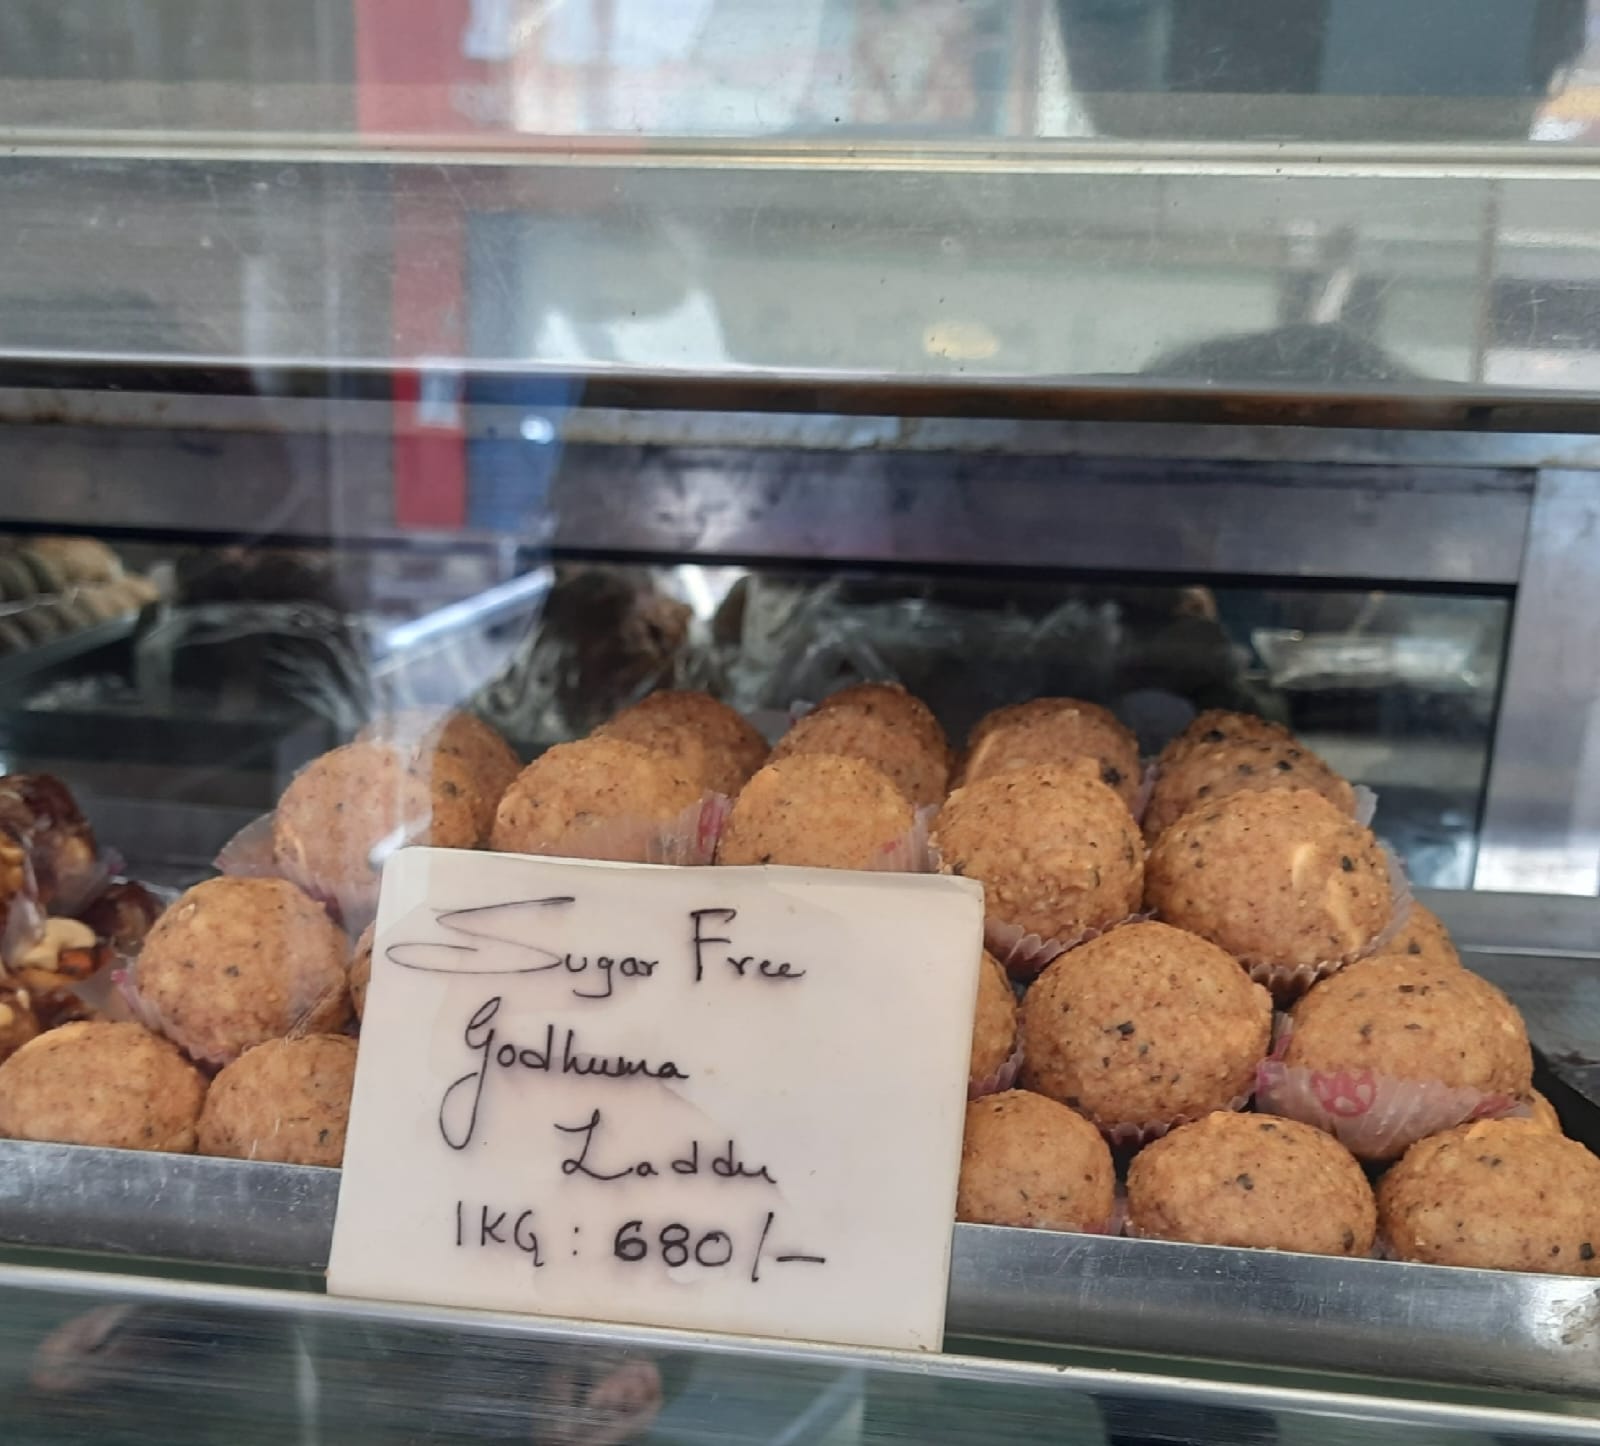 Sugar Free
Godhuma
Laddu
1KG : 680/-